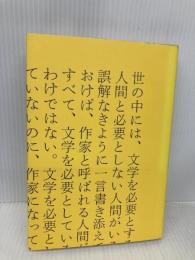 世の中には、文学を必要とする
人間と必要としない人間がい
誤解なきように一言書き添え
おけば、作家と呼ばれる人間
すべて、文学を必要としてい
わけではない。文学を必要と
ていないのに、作家になって